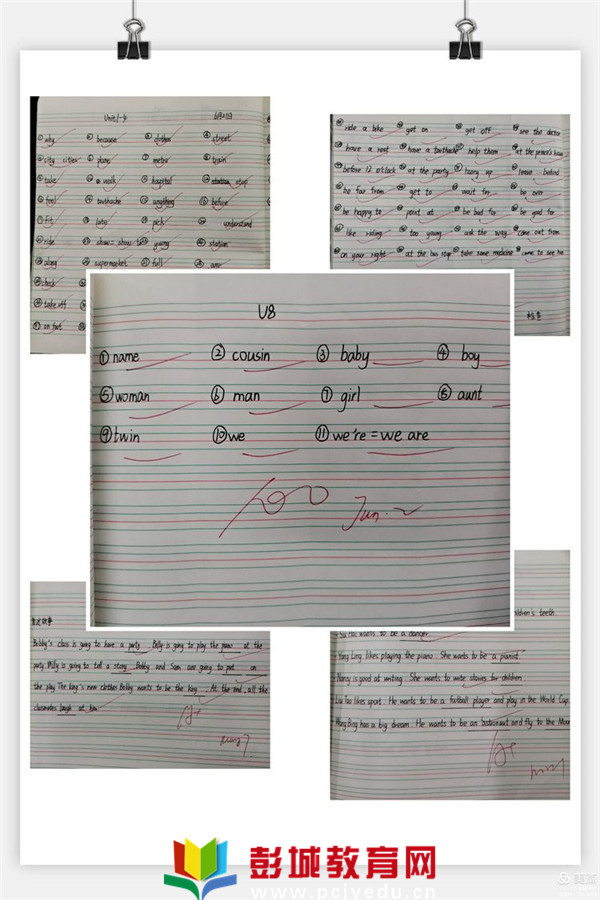 Unit1-4
①why ②because ③clothes ④street
city cities place metro train
take a walk hospital station stop
feel toothache anything before
fit late pick understand
ride show= young station
along supermarket fall over
check
take off
on foot
ride a bike get on get off see the doctor
have a rest have a toothache help them at the prince's house
before 12 o'clock at the party hurry up leave behind
be far from get to wait for be over
be happy to point at be bad for be good for
like riding too young ask the way come out from
on your right at the bus stop take some medicine come to see him
U8
①name ②cousin ③baby ④boy
⑤woman ⑥man ⑦girl ⑧aunt
⑨twin ⑩we ⑪we're=we are
100 Jun.2
Bobby's class is going to have a party. Billy is going to play the piano at the
party. Milly is going to tell a story. Bobby and Sam are going to put on
the play The king's new clothes. Bobby wants to be the king. At the end, all the
classmates laugh at him.
A+
children's teeth.
Su Hai wants to be a dancer.
Yang Ling likes playing the piano. She wants to be a pianist.
Nancy is good at writing. She wants to write stories for children.
Liu Tao likes sport. He wants to be a football player and play in the World Cup.
Wang Bing has a big dream. He wants to be an astronaut and fly to the Moon.
A+
彭城教育网
www.pcjyedu.cn